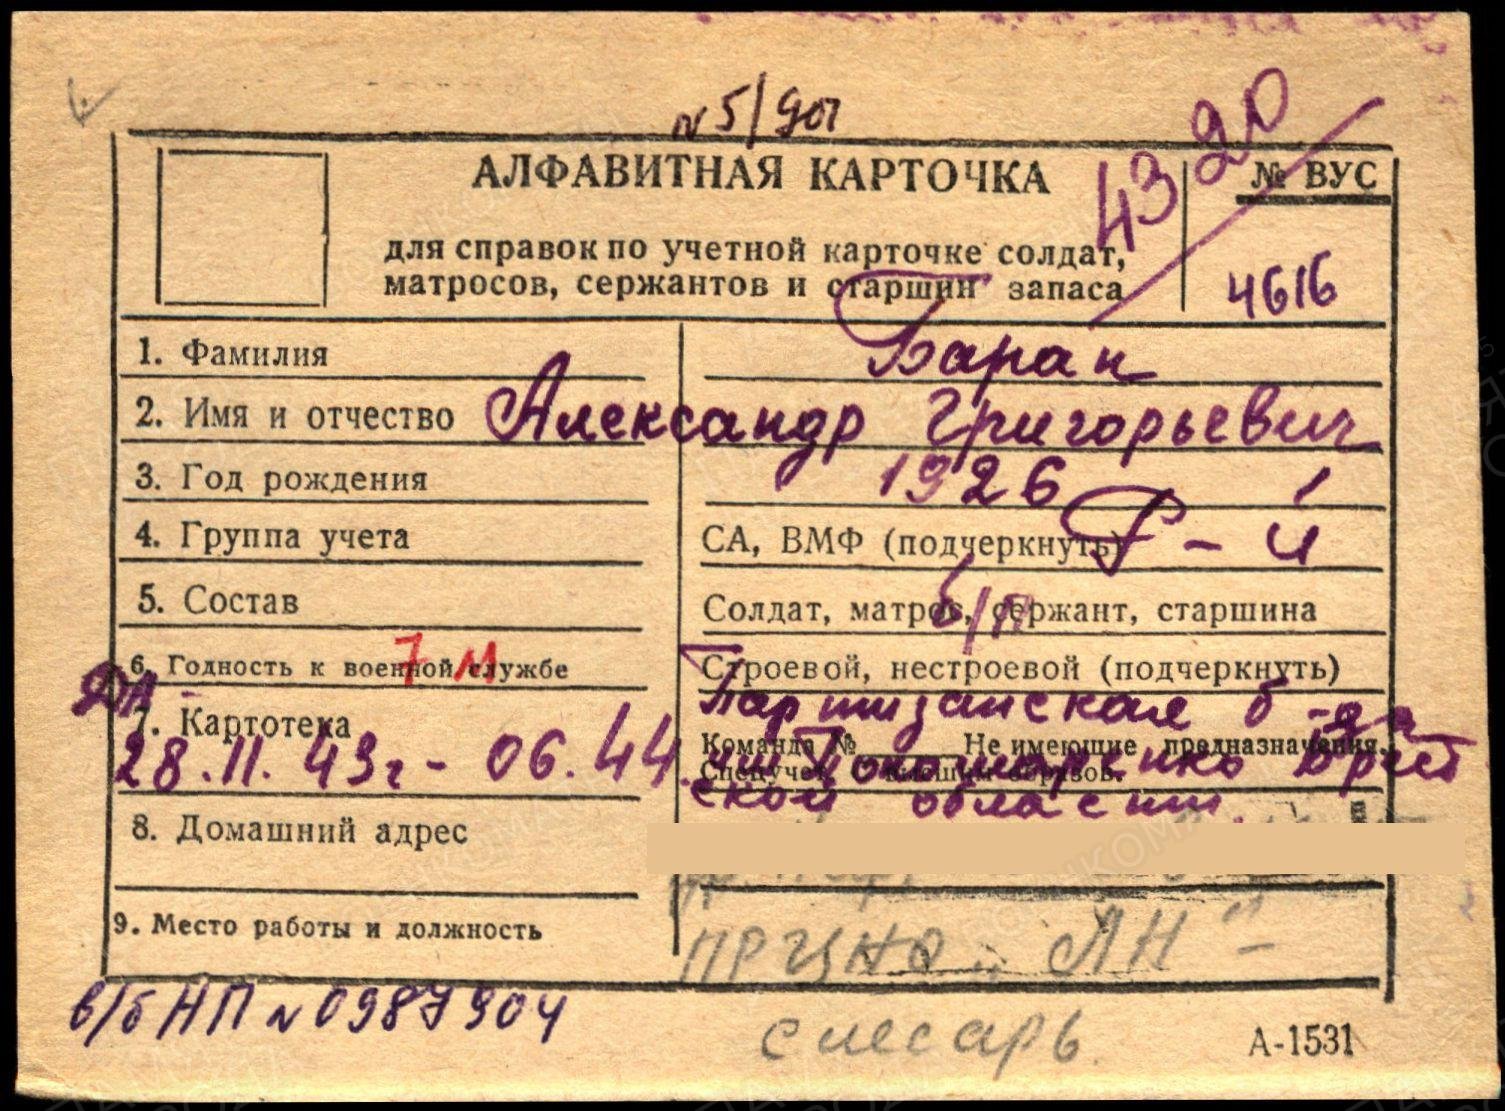 № 5/901
4320
АЛФАВИТНАЯ КАРТОЧКА
№ ВУС
для справок по учетной карточке солдат,
матросов, сержантов и старшин запаса
4616
1. Фамилия Баран
2. Имя и отчество Александр Григорьевич
3. Год рождения 1926
4. Группа учета СА, ВМФ (подчеркнуть) Р-й
5. Состав Солдат, матрос, сержант, старшина б/п
6. Годность к военной службе Строевой, нестроевой (подчеркнуть)
7 М
Партизанская б-да
7. Картотека Команда № Не имеющие предназначения.
28.11.43г - 06.44 им Пономаренко Брест
Спецучет. С высшим образов.
ской области.
8. Домашний адрес
9. Место работы и должность "АН" -
слесарь.
в/б НП № 0987904
А-1531